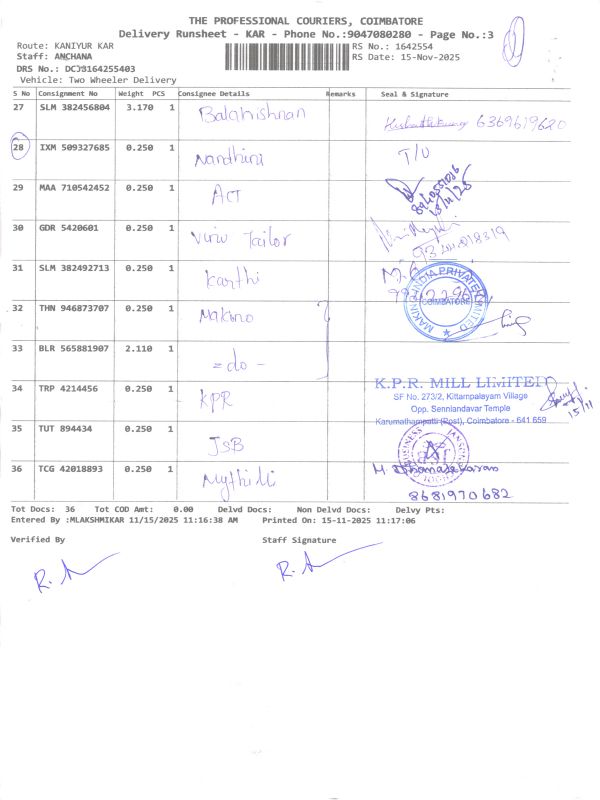 THE PROFESSIONAL COURIERS, COIMBATORE
Delivery Runsheet - KAR - Phone No.:9047080280 - Page No.:3
Route: KANIYUR KAR
RS No.: 1642554
Staff: ANCHANA
RS Date: 15-Nov-2025
DRS No.: DCJB164255403
Vehicle: Two Wheeler Delivery
S No Consignment No Weight PCS Consignee Details Remarks Seal & Signature
27 SLM 382456804 3.170 1 Balakrishnan 6369619620
28 IXM 509327685 0.250 1 Nandhini T/U
29 MAA 710542452 0.250 1 ACT 15/11/25
30 GDR 5420601 0.250 1 Viru Tailor
31 SLM 382492713 0.250 1 Karthi
32 THN 946873707 0.250 1 Makino
MAKINO INDIA PRIVATE LIMITED
COIMBATORE
33 BLR 565881907 2.110 1 =do -
34 TRP 4214456 0.250 1 KPR
K.P.R. MILL LIMITED
SF No. 273/2, Kittampalayam Village
Opp. Sennlandavar Temple
Karumathampatti (Post), Coimbatore - 641 659
15/11
35 TUT 894434 0.250 1 JSB
36 TCG 42018893 0.250 1 Mythili
8681970682
Tot Docs: 36 Tot COD Amt: 0.00 Delvd Docs: Non Delvd Docs: Delvy Pts:
Entered By :MLAKSHMIKAR 11/15/2025 11:16:38 AM Printed On: 15-11-2025 11:17:06
Verified By Staff Signature